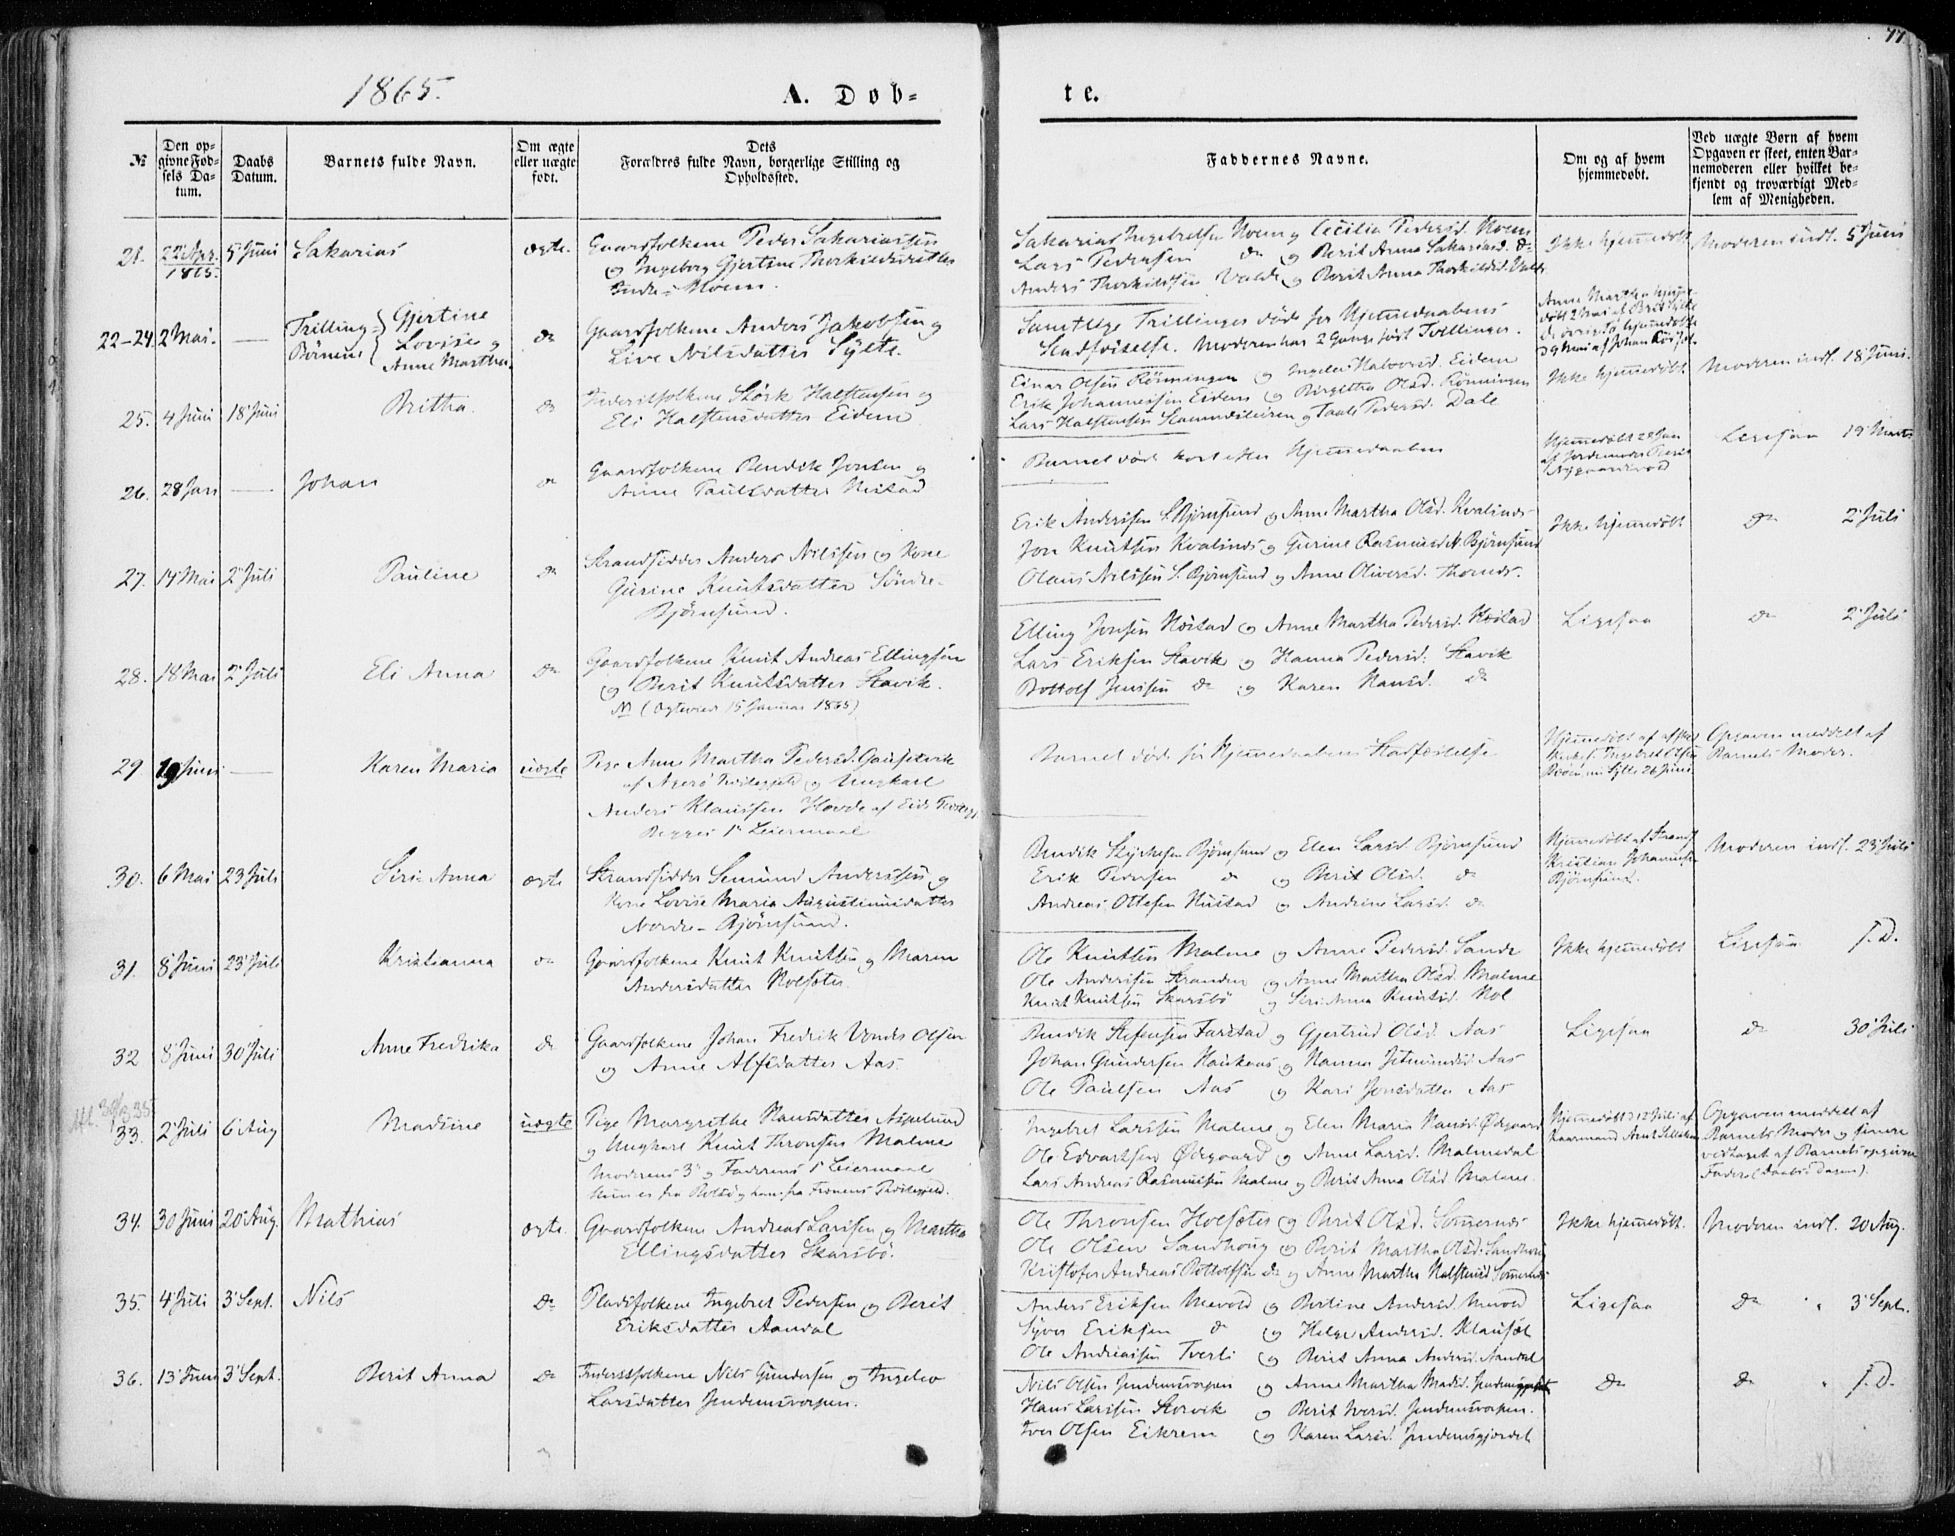 77
1865.
A. Døb-
te.
№
Den op-
givne Fød-
sels Da-
tum.
Daabs
Datum.
Barnets fulde Navn.
Om ægte
eller uægte
født.
Dets
Forældres fulde Navn, borgerlige Stilling og
Opholdssted.
Faddernes Navne.
Om og af hvem
hjemmedøbt.
Ved uægte Børn af hvem
Opgaven er skeet, enten Bar-
nemoderen eller hvilket be-
kjendt og troværdigt Med-
lem af Menigheden.
21.
22 Apr.
1865.
5 Juni
Sakarias
ægte.
Gaardfolkene Peder Sakariassen
og Ingeborg Gjertine Thorkildsdatter
Indre-Moen.
Sakarias Ingebretsen Moen og Cecilia Pedersd. Moen
Lars Pedersen do og Berit Anna Sakariasd. do
Anders Thorkildsen Valde og Berit Anna Thorkildsd. Valde
Ikke hjemmedøbt
Moderen indl. 5 Juni
22-24.
2 Mai.
—
Trilling-
Børnene
Gjertine
Lovise og
Anne Martha
do
Gaardfolkene Anders Jakobsen og
Live Nilsdatter Sylte.
Samtlige Trillinger døde før Hjemmedaabens
Stadfæstelse. Moderen har 2 Gange født Tvillinger.
Anne Martha hjemme-
døbt 2 Mai af Berit Sylte
d. øvrige to hjemmedøbte
d 9 Mai af Johan
25.
4 Juni
18 Juni
Britha
do
Inderstfolkene Størk Halstensen og
Eli Halstensdatter Eidem
Einar Olsen Rønningen og Ingeleiv Halvorsd. Eidem
Erik Johannessen Eidem og Birgitha Olsd. Rønningen
Lars Halstensen og Pedersd. Dale
Ikke hjemmedøbt
Moderen indl. 18 Juni.
26.
28 Jan
—
Johan
do
Gaardfolkene Bendik Jonsen og
Anne Paulsdatter Nestad
Barnet døde kort efter Hjemmedaaben
Hjemmedøbt 28 Jan
af Jordemoder Berit
Ligesaa 19 Marts
27.
14 Mai
2 Juli
Pauline
do
Strandsidder Anders Nilssen og Kone
Gurine Knutsdatter Søndre-
Bjørnsund.
Erik Anderssen S. Bjørnsund og Anne Martha Olsd. Kvalsnes
Jon Knutsen Kvalsnes og Gurine Rasmusd. N. Bjørnsund
Olaus Nilssen S. Bjørnsund og Anne Oliversd. Thornes.
Ikke hjemmedøbt
do 2 Juli
28.
18 Mai
2 Juli
Eli Anna
do
Gaardfolkene Knut Andreas Ellingsen
og Berit Knutsdatter Stavik.
NB (Ægteviede 15 Januar 1865)
Elling Jonsen Nestad og Anne Martha Pedersd. Nestad
Lars Eriksen Stavik og Hanna Pedersd. Stavik
Bottolf Jenssen do og Karen Hansd. do
Ligesaa
do 2 Juli
29
19 Juni
—
Karen Maria
uægte
Pige Anne Martha Pedersd.
af Agerø Præstegjeld og Ungkarl
Anders Klaussen Hovde af Eids Præstegj.
Begges 1ste Leiermaal
Barnet døde før Hjemmedaabens Stadfæstelse
Hjemmedøbt af
Ingebret Olsen
Sylte 26 Juni
Opgaven meddelt af
Barnets Moder.
30.
6 Mai
23 Juli
Siri Anna
ægte
Strandsidder Semund Anderssen og
Kone Lovise Maria Augustinusdatter
Nordre-Bjørnsund.
Bendik Bjørnsund og Elen Larsd. Bjørnsund
Erik Pedersen do og Berit Olsd. do
Andreas Ottesen Hustad og Andrine Larsd. do
Hjemmedøbt af Strands.
Kristian Johannesen
Bjørnsund.
Moderen indl. 23 Juli
31.
8 Juni
23 Juli
Kristianna
do
Gaardfolkene Knut Knutsen og Maren
Andersdatter Holsæter
Ole Knutsen Malme og Anne Pedersd. Sande
Ole Anderssen Stranden og Anne Martha Olsd. Malme
Knut Knutsen Skarsbø og Siri Anna Knutsd. Hol
Ikke hjemmedøbt
Ligesaa s. D.
32
8 Juni
30 Juli
Anne Fredrika
do
Gaardfolkene Johan Fredrik Olsen
og Anne Alfsdatter Aas.
Bendik Farstad og Gjertrud Olsd. Aas
Johan Gundersen Haukaas og Hanna Aas
Ole Paulsen Aas og Kari Jonsdatter Aas
Ligesaa
do 30 Juli
33.
2 Juli
6 Aug
Madsine
uægte
Pige Margrethe Hansdatter Aspelund
og Ungkarl Knut Thronsen Malme
Moderens 3die og Faderens 1ste Leiermaal
Hun er fra Bolsø og han fra Frænens Præstegjeld.
Ingebret Larssen Malme og Elen Maria Hansd. Ødegaard
Ole Edvartsen Ødegaard og Anne Larsd. Malmedal
Lars Andreas Rasmussen Malme og Berit Anna Olsd. Malme
Hjemmedøbt d. 12 Juli af
Opgaven meddelt af
Barnets Moder og senere
vedtaget af Barnets opgivne
Fader (Daabs-Dagen).
34.
30 Juni
20 Aug.
Mathias
ægte.
Gaardfolkene Andreas Larssen og Martha
Ellingsdatter Skarsbø.
Ole Thronsen Holsæter og Berit Olsd. Sommernes
Ole Olsen Sandhoug og Berit Martha Olsd. Sandhoug
Kristofer Andreas Bottolfsen do og Anne Martha Halstensd. Sommernes
Ikke hjemmedøbt.
Moderen indl. 20 Aug.
35.
4 Juli
3 Sept.
Nils
do
Pladsfolkene Ingebret Pedersen og Berit
Eriksdatter Aandal
Anders Eriksen Mevold og Bertine Andersd. Mevold
Syver Eriksen do og Helge Andersd. Klauset
Ole Andreassen Tverli og Berit Anna Andersd. Aandal
Ligesaa
do " 3 Sept.
36.
13 Juni
3 Sept.
Berit Anna
do
Inderstfolkene Nils Gundersen og Ingeleiv
Larsdatter Jendemsvorpen.
Nils Olsen Jendemsvorpen og Anne Martha Madsd.
Hans Larssen Storvik og Berit Iversd. Jendemsvorpen.
Iver Olsen Eikrem og Karen Larsd. Jendemsgjerdet
do
do " s. D.